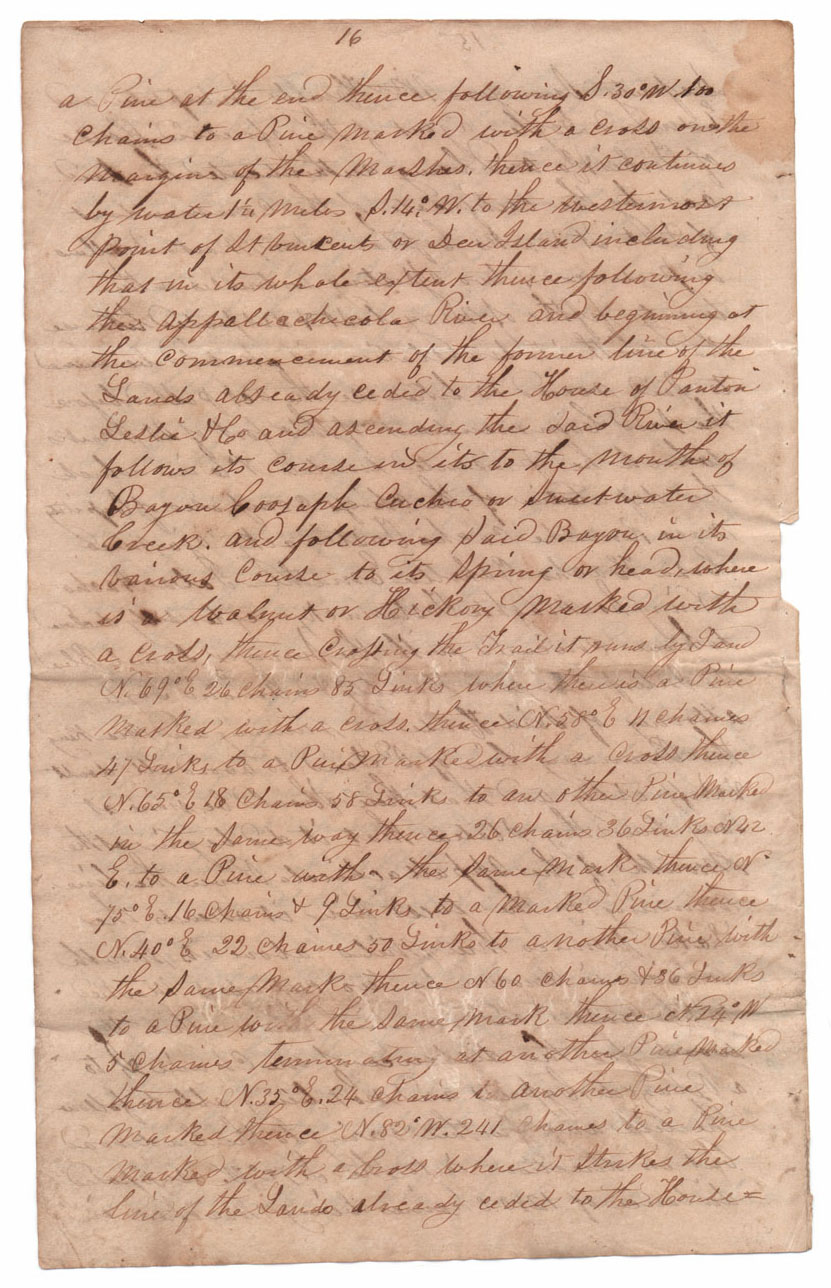 16
a Pine at the end thence following S. 30° W. 100
Chains to a Pine Marked with a cross on the
Margin of the Marshes, thence it continues
by water 1½ Miles S. 14° W. to the westermost
Point of St Vincents or Deer Island including
that in its whole extent thence following
the Appallachicola River and beginning at
the commencement of the former line of the
Lands already ceded to the House of Panton
Leslie & Co and ascending the said River it
follows its course in its to the mouth of
Bayou Coosaph Cuchio or Sweet water
Creek. and following said Bayou in its
various Course to its Spring or head, where
is a Walnut or Hickory Marked with
a cross, thence Crossing the Trail it runs by Land
N. 69° E 26 Chains 85 Links where there is a Pine
Marked with a cross, thence N. 58° E 11 Chaines
47 Links to a Pine Marked with a Cross thence
N. 65° E 18 Chains 58 Links to an other Pine Marked
in the Same way thence 26 Chains 36 Links N 42
E. to a Pine with the Same Mark thence N
75° E. 16 Chains & 9 Links to a Marked Pine thence
N. 40° E 22 Chaines 50 Links to another Pine with
the Same Mark thence N 60 Chaines & 86 Links
to a Pine with the Same Mark thence N. 24° W
5 Chaines terminating at another Pine Marked
thence N. 35° E. 24 Chains to another Pine
Marked thence N. 82° W. 241 Chaines to a Pine
Marked with a Cross where it Strikes the
line of the Lands already ceded to the House =